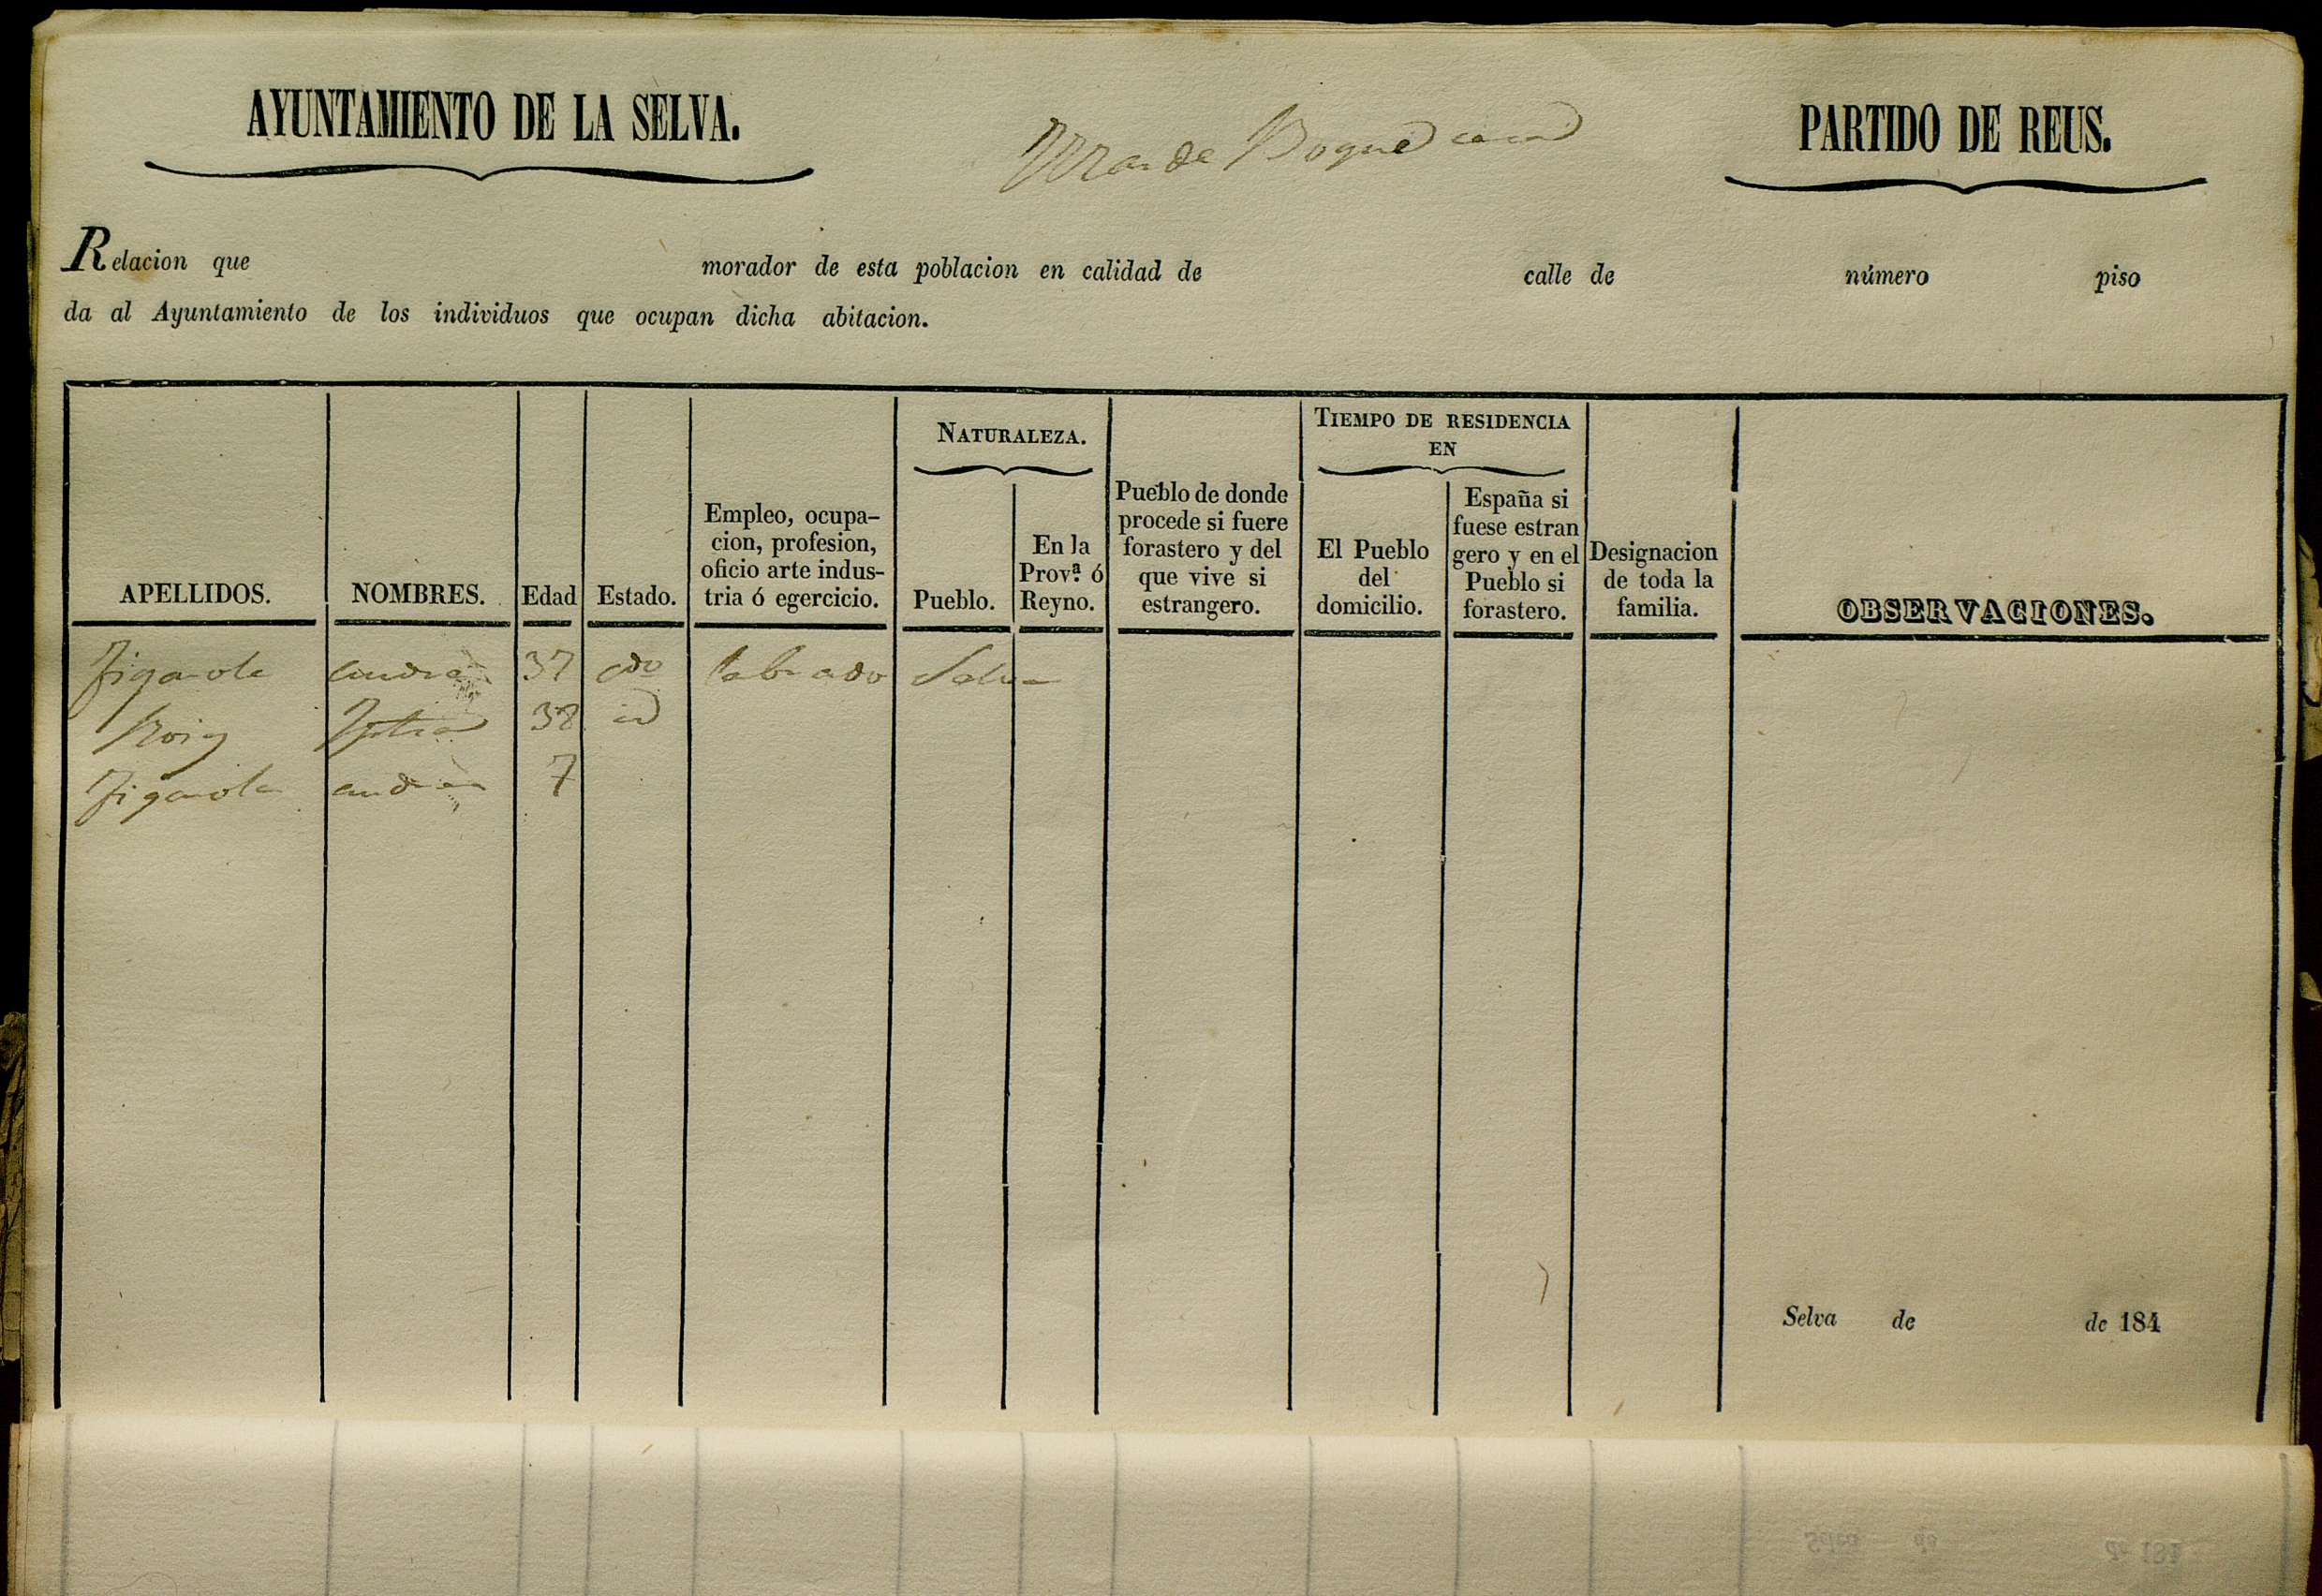 AYUNTAMIENTO DE LA SELVA.
PARTIDO DE REUS.
Mas de
Relacion que morador de esta poblacion en calidad de calle de número piso
da al Ayuntamiento de los individuos que ocupan dicha abitacion.
APELLIDOS.
NOMBRES.
Edad
Estado.
Empleo, ocupa-
cion, profesion,
oficio arte indus-
tria ó egercicio.
NATURALEZA.
Pueblo.
En la
Prov.ª ó
Reyno.
Pueblo de donde
procede si fuere
forastero y del
que vive si
estrangero.
TIEMPO DE RESIDENCIA
EN
El Pueblo
del
domicilio.
España si
fuese estran
gero y en el
Pueblo si
forastero.
Designacion
de toda la
familia.
OBSERVACIONES.
Figarola 37 cdo labrado Selva
Roig 38 id
Figarola 7
Selva de de 184